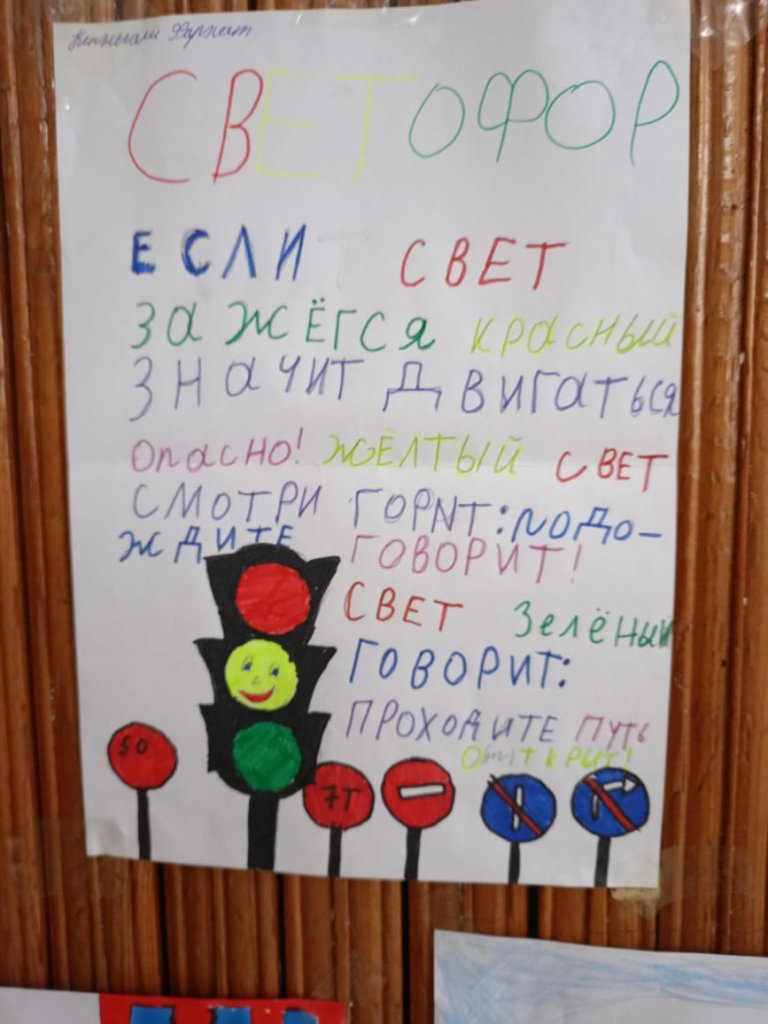 СВЕТОФОР
ЕСЛИ СВЕТ
ЗАЖЁГСЯ КРАСНЫЙ
ЗНАЧИТ ДВИГАТЬСЯ
ОПАСНО! ЖЁЛТЫЙ СВЕТ
СМОТРИ ГОРИТ: ПОДО-
ЖДИТЕ ГОВОРИТ!
СВЕТ Зелёный
ГОВОРИТ:
ПРОХОДИТЕ ПУТЬ
ОТКРЫТ!
50
7Т